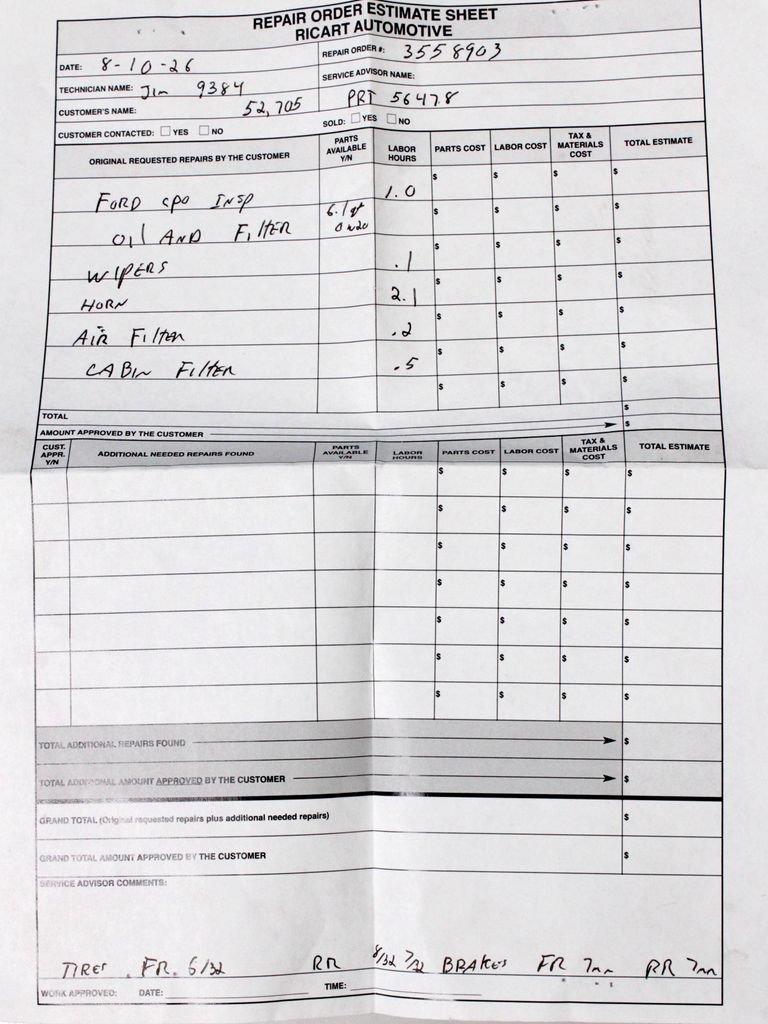 REPAIR ORDER ESTIMATE SHEET
RICART AUTOMOTIVE
DATE: 8-10-26 REPAIR ORDER #: 3558903
TECHNICIAN NAME: Jim 9384 SERVICE ADVISOR NAME:
CUSTOMER'S NAME: 52,705 PRT 56478
CUSTOMER CONTACTED: YES NO SOLD: YES NO
ORIGINAL REQUESTED REPAIRS BY THE CUSTOMER PARTS AVAILABLE Y/N LABOR HOURS PARTS COST LABOR COST TAX & MATERIALS COST TOTAL ESTIMATE
FORD CPO INSP 1.0 $ $ $ $
OIL AND FILTER 6.1qt 0w20 $ $ $ $
WIPERS .1 $ $ $ $
HORN 2.1 $ $ $ $
AIR FILTER .2 $ $ $ $
CABIN FILTER .5 $ $ $ $
$ $ $ $
TOTAL $
AMOUNT APPROVED BY THE CUSTOMER $
CUST. APPR. Y/N ADDITIONAL NEEDED REPAIRS FOUND PARTS AVAILABLE Y/N LABOR HOURS PARTS COST LABOR COST TAX & MATERIALS COST TOTAL ESTIMATE
$ $ $ $
$ $ $ $
$ $ $ $
$ $ $ $
$ $ $ $
$ $ $ $
$ $ $ $
TOTAL ADDITIONAL REPAIRS FOUND $
TOTAL ADDITIONAL AMOUNT APPROVED BY THE CUSTOMER $
GRAND TOTAL (Original requested repairs plus additional needed repairs) $
GRAND TOTAL AMOUNT APPROVED BY THE CUSTOMER $
SERVICE ADVISOR COMMENTS:
TIRES FR. 6/32 RR 8/32 7/32 BRAKES FR 7mm RR 7mm
WORK APPROVED: DATE: TIME: